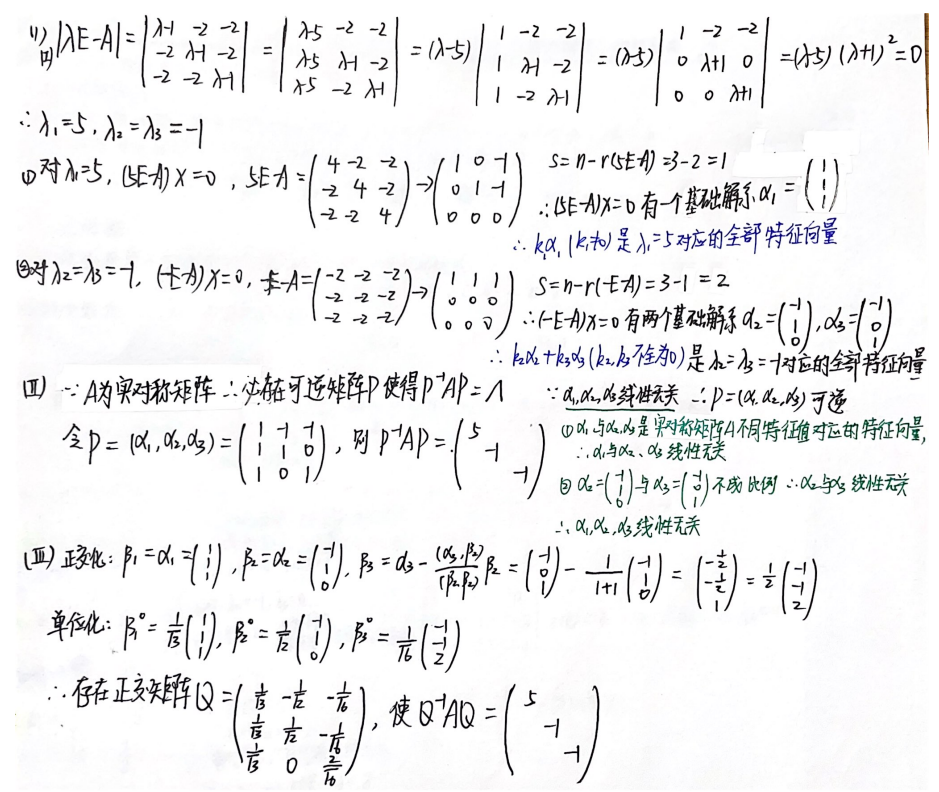 (1)(I) |λE-A| = |λ-1 -2 -2; -2 λ-1 -2; -2 -2 λ-1| = |λ-5 -2 -2; λ-5 λ-1 -2; λ-5 -2 λ-1| = (λ-5) |1 -2 -2; 1 λ-1 -2; 1 -2 λ-1| = (λ-5) |1 -2 -2; 0 λ+1 0; 0 0 λ+1| = (λ-5)(λ+1)² = 0
∴ λ₁=5, λ₂=λ₃=-1
① 对λ₁=5, (5E-A)X=0, 5E-A = (4 -2 -2; -2 4 -2; -2 -2 4) → (1 0 -1; 0 1 -1; 0 0 0) S=n-r(5E-A)=3-2=1
∴(5E-A)X=0 有一个基础解系 α₁ = (1; 1; 1)
∴ k₁α₁ (k₁≠0) 是 λ₁=5 对应的全部特征向量
② 对λ₂=λ₃=-1, (-E-A)X=0, -E-A = (-2 -2 -2; -2 -2 -2; -2 -2 -2) → (1 1 1; 0 0 0; 0 0 0) S=n-r(-E-A)=3-1=2
∴(-E-A)X=0 有两个基础解系 α₂ = (-1; 1; 0), α₃ = (-1; 0; 1)
∴ k₂α₂+k₃α₃ (k₂,k₃不全为0) 是 λ₂=λ₃=-1对应的全部特征向量
(II) ∵ A为实对称矩阵 ∴必存在可逆矩阵P使得P⁻¹AP=Λ ∵ α₁,α₂,α₃线性无关 ∴P=(α₁,α₂,α₃)可逆
令P=(α₁,α₂,α₃) = (1 -1 -1; 1 1 0; 1 0 1), 则 P⁻¹AP = (5 -1 -1)
①α₁与α₂,α₃是实对称矩阵A不同特征值对应的特征向量,
∴α₁与α₂、α₃线性无关
② α₂=(-1; 1; 0)与α₃=(-1; 0; 1)不成比例 ∴α₂与α₃线性无关
∴ α₁,α₂,α₃线性无关
(III) 正交化: β₁=α₁=(1; 1; 1), β₂=α₂=(-1; 1; 0), β₃=α₃-(α₃,β₂)/(β₂,β₂) β₂ = (-1; 0; 1) - 1/(1+1) (-1; 1; 0) = (-1/2; -1/2; 1) = 1/2 (-1; -1; 2)
单位化: β₁° = 1/√3 (1; 1; 1), β₂° = 1/√2 (-1; 1; 0), β₃° = 1/√6 (-1; -1; 2)
∴ 存在正交矩阵Q = (1/√3 -1/√2 -1/√6; 1/√3 1/√2 -1/√6; 1/√3 0 2/√6), 使Q⁻¹AQ = (5 -1 -1)